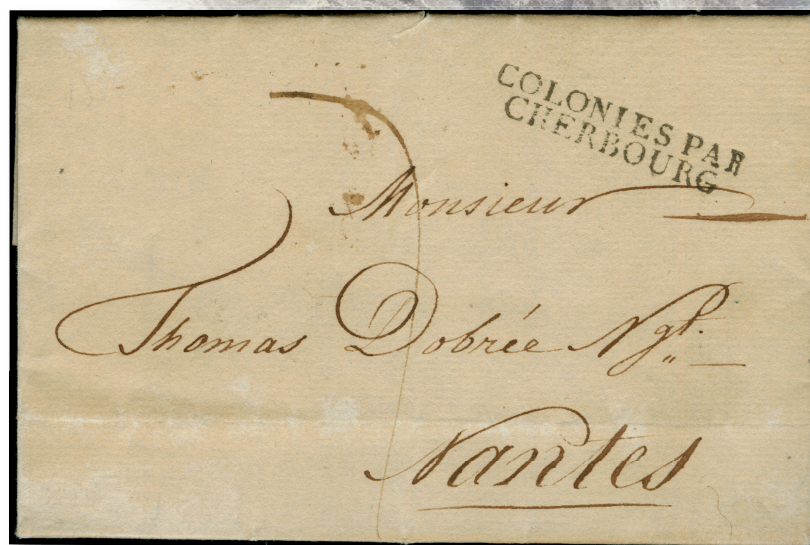 COLONIES PAR
CHERBOURG
Monsieur
Thomas Dobrée Ngt.
Nantes